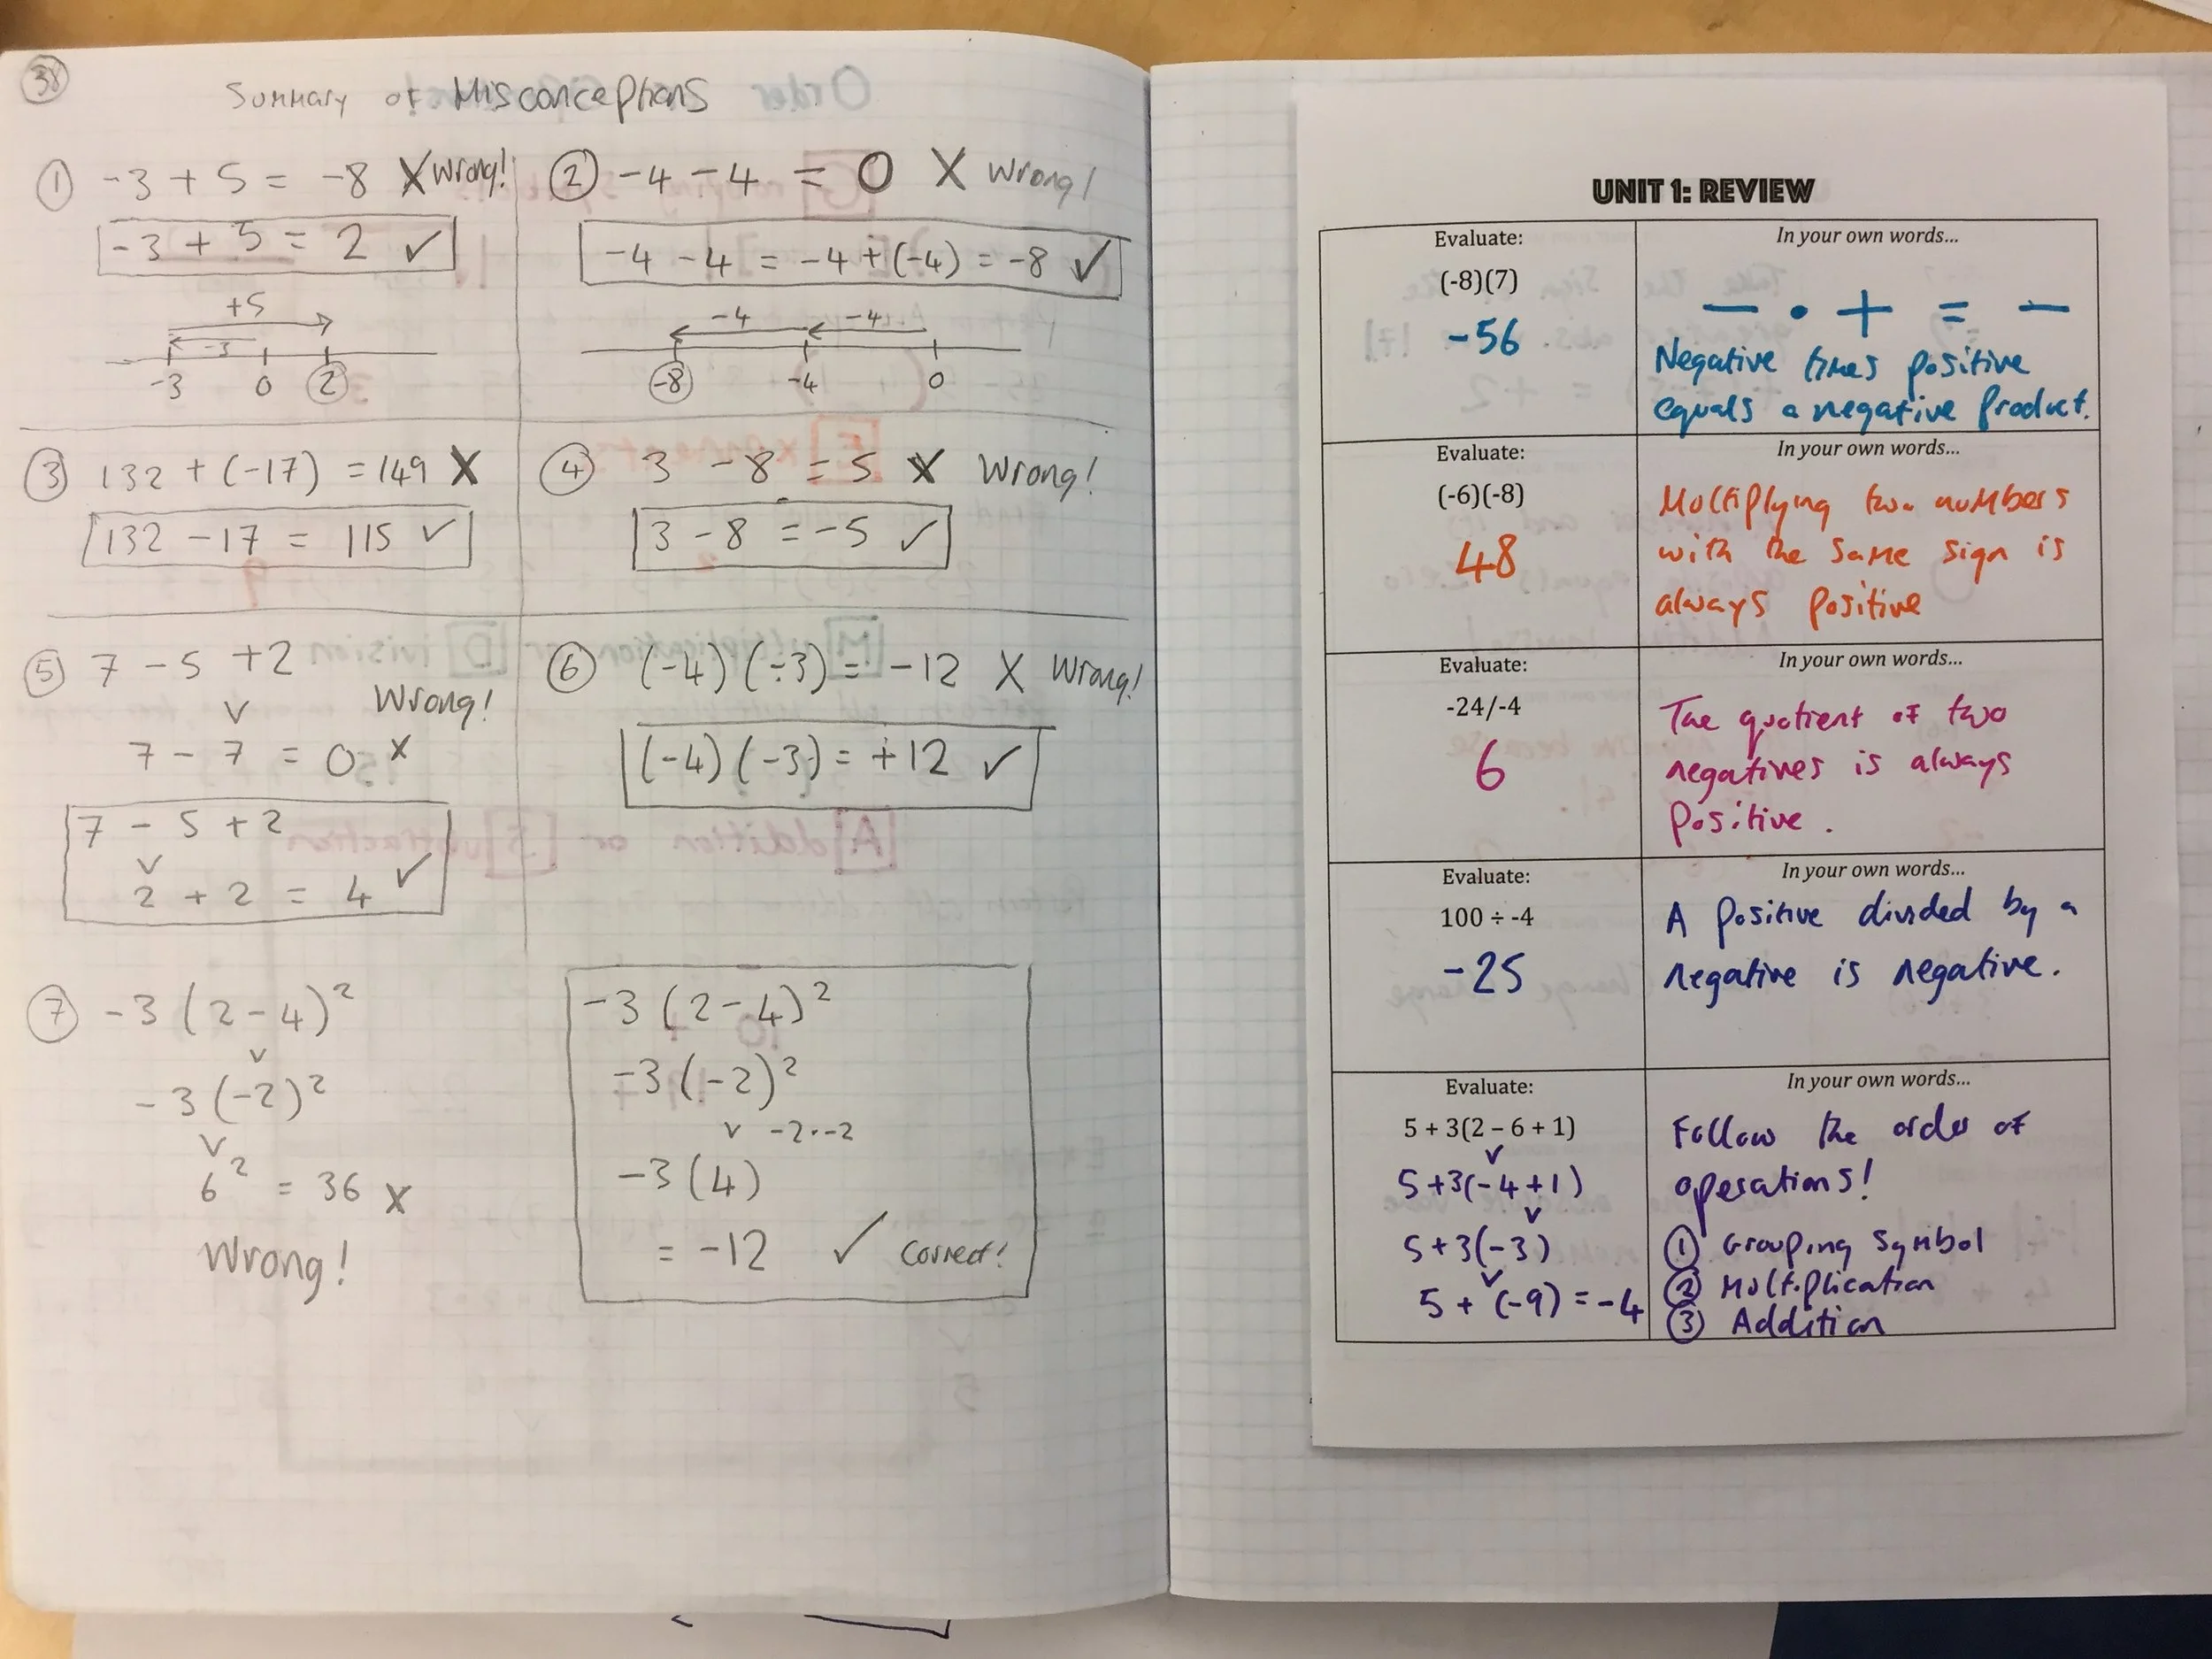 38
Summary of Misconceptions
① -3 + 5 = -8 X Wrong!
-3 + 5 = 2 ✓
+5
-3
-3 0 2
② -4 - 4 = 0 X Wrong!
-4 - 4 = -4 + (-4) = -8 ✓
-4 -4
-8 -4 0
③ 132 + (-17) = 149 X
132 - 17 = 115 ✓
④ 3 - 8 = 5 X Wrong!
3 - 8 = -5 ✓
⑤ 7 - 5 + 2
Wrong!
7 - 7 = 0 X
7 - 5 + 2
2 + 2 = 4 ✓
⑥ (-4)(-3) = -12 X Wrong!
(-4)(-3) = +12 ✓
⑦ -3(2-4)²
-3(-2)²
6² = 36 X
Wrong!
-3(2-4)²
-3(-2)²
-2·-2
-3(4)
= -12 ✓ Correct!
UNIT 1: REVIEW
Evaluate:
(-8)(7)
-56
In your own words...
− • + = −
Negative times positive
equals a negative product.
Evaluate:
(-6)(-8)
48
In your own words...
Multiplying two numbers
with the same sign is
always positive
Evaluate:
-24/-4
6
In your own words...
The quotient of two
negatives is always
positive.
Evaluate:
100 ÷ -4
-25
In your own words...
A positive divided by a
negative is negative.
Evaluate:
5 + 3(2 – 6 + 1)
5+3(-4+1)
5+3(-3)
5 + (-9) = -4
In your own words...
Follow the order of
operations!
① Grouping Symbol
② Multiplication
③ Addition